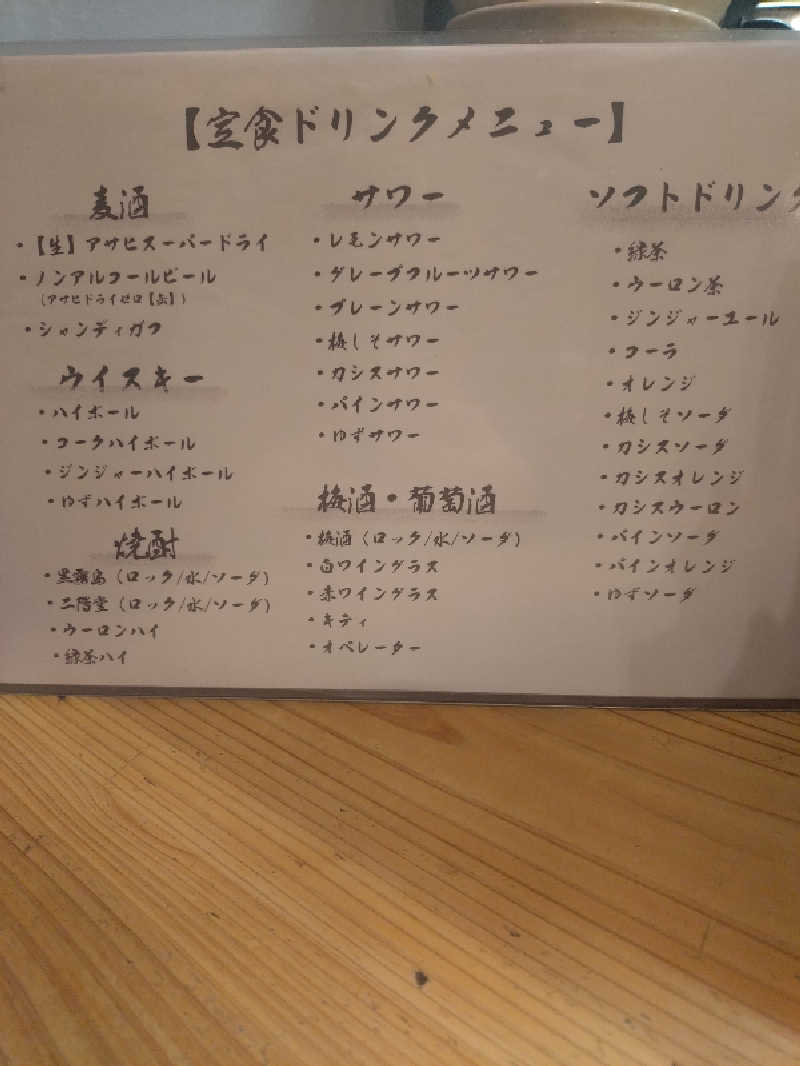 【定食ドリンクメニュー】
麦酒
・【生】アサヒスーパードライ
・ノンアルコールビール
(アサヒドライゼロ【缶】)
・シャンディガフ
ウイスキー
・ハイボール
・コークハイボール
・ジンジャーハイボール
・ゆずハイボール
焼酎
・黒霧島(ロック/水/ソーダ)
・二階堂(ロック/水/ソーダ)
・ウーロンハイ
・緑茶ハイ
サワー
・レモンサワー
・グレープフルーツサワー
・プレーンサワー
・梅しそサワー
・カシスサワー
・パインサワー
・ゆずサワー
梅酒・葡萄酒
・梅酒(ロック/水/ソーダ)
・白ワイングラス
・赤ワイングラス
・キティ
・オペレーター
ソフトドリンク
・緑茶
・ウーロン茶
・ジンジャーエール
・コーラ
・オレンジ
・梅しそソーダ
・カシスソーダ
・カシスオレンジ
・カシスウーロン
・パインソーダ
・パインオレンジ
・ゆずソーダ